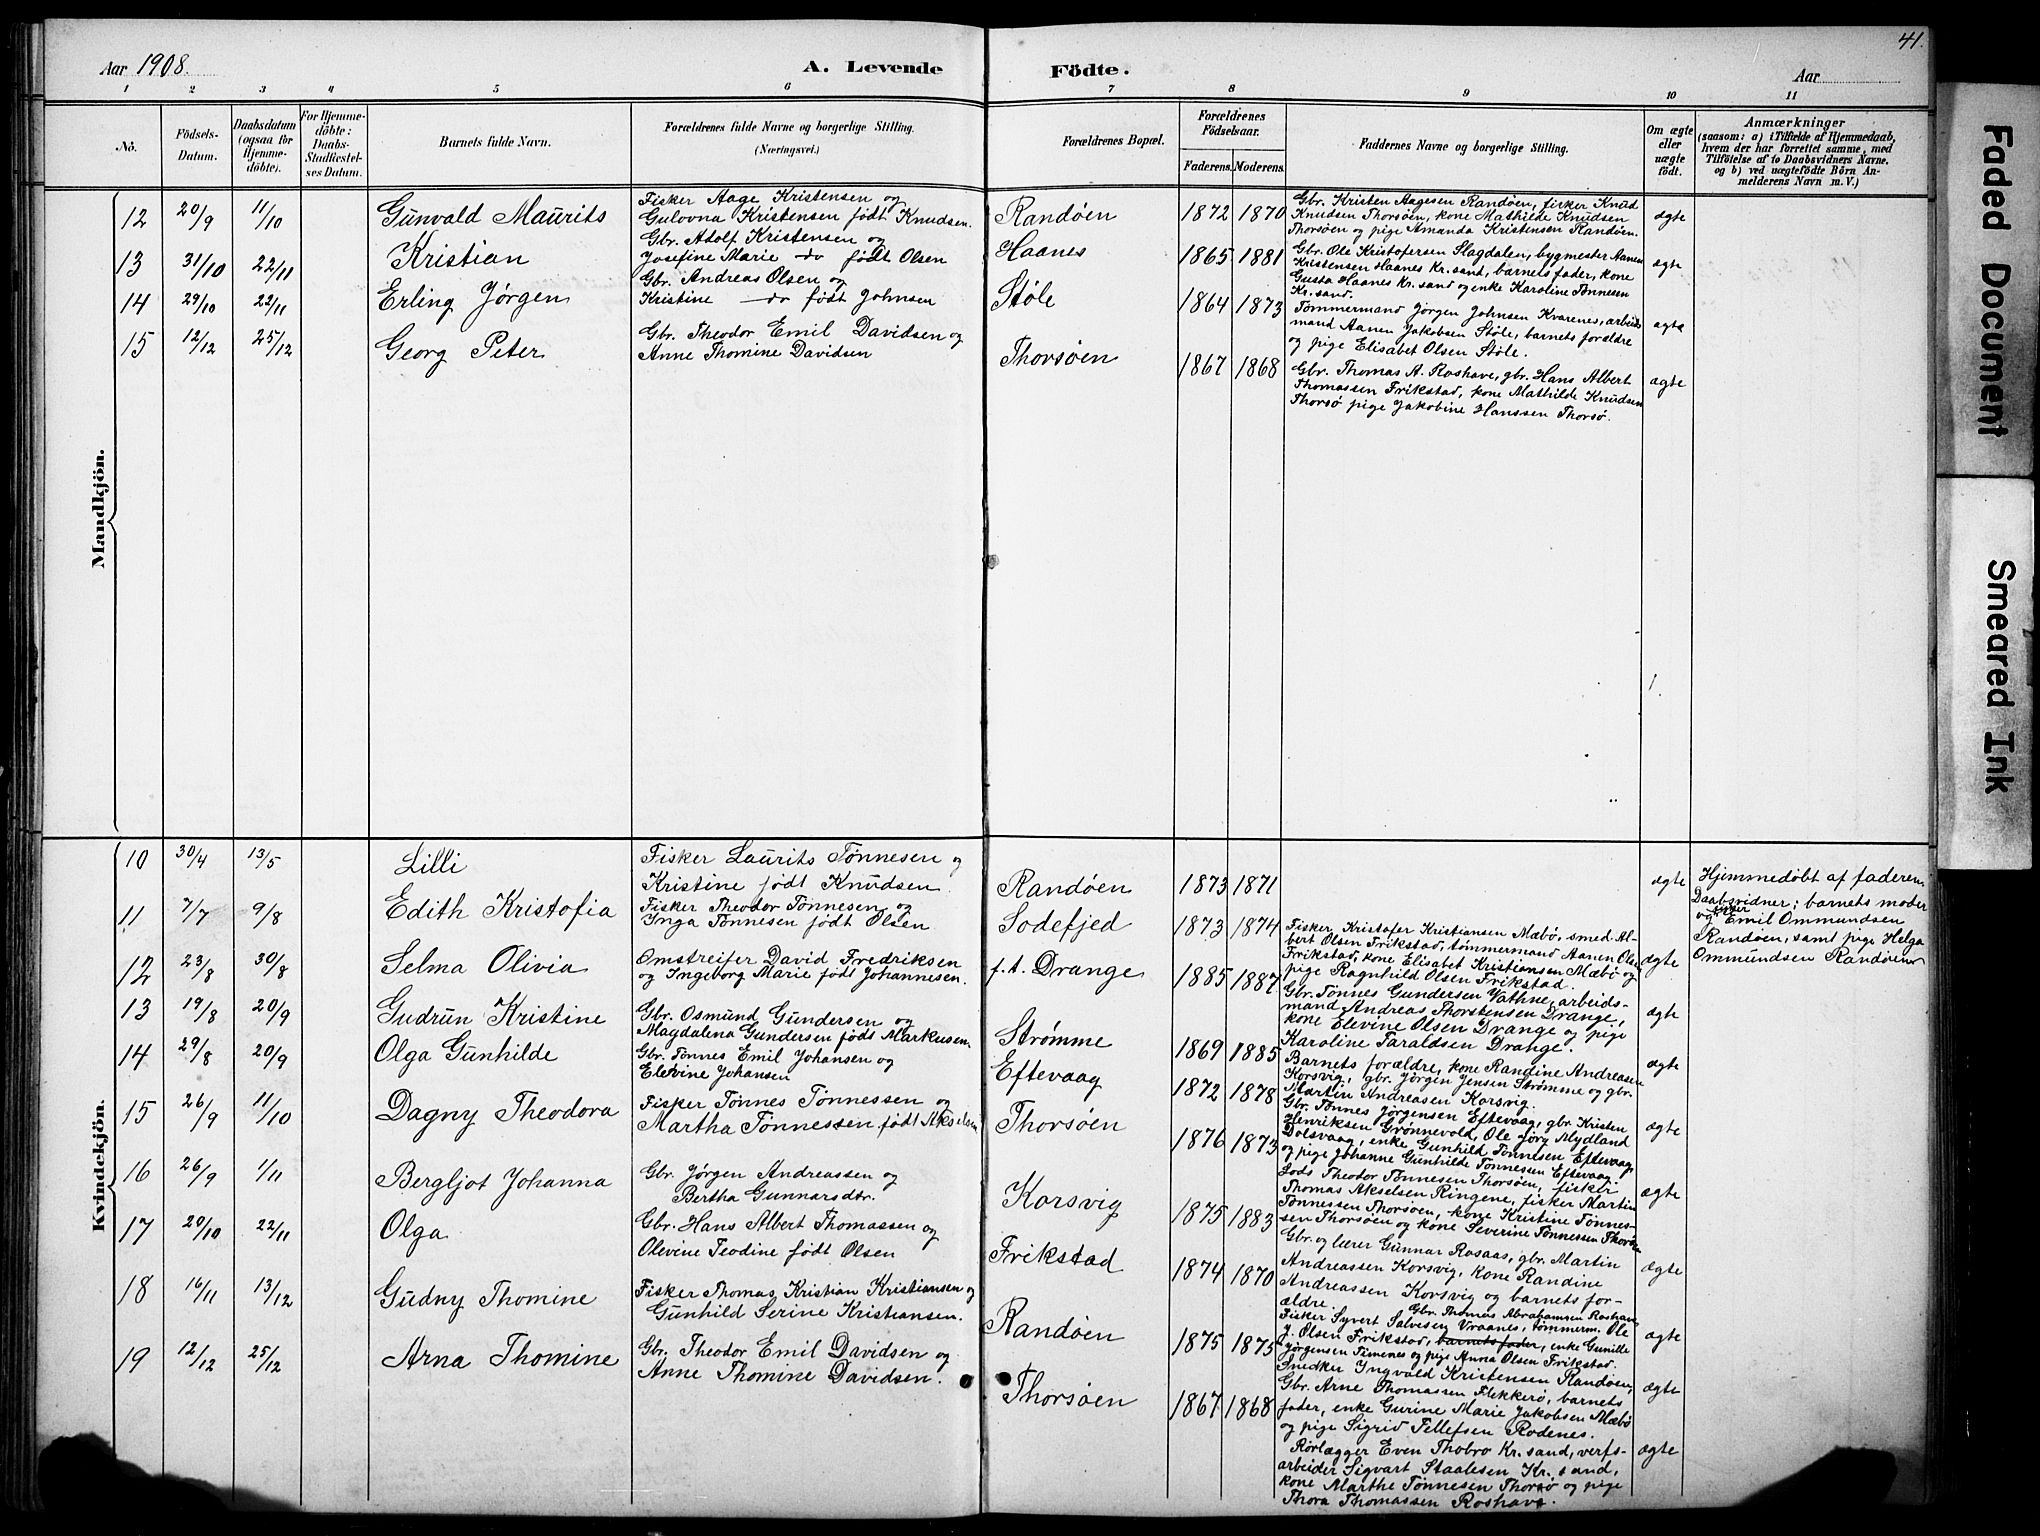 41.
Aar 1908.
A. Levende
Födte.
Aar
1 2 3 4 5 6 7 8 9 10 11
No.
Födsels-
Datum.
Daabsdatum
(ogsaa for
Hjemme-
döbte).
For Hjemme-
döbte:
Daabs-
Stadfæstel-
ses Datum.
Barnets fulde Navn.
Forældrenes fulde Navne og borgerlige Stilling.
(Næringsvei.)
Forældrenes Bopæl.
Forældrenes
Födselsaar.
Faderens. Moderens.
Faddernes Navne og borgerlige Stilling.
Om ægte
eller
uægte
födt.
Anmærkninger
(saasom: a) i Tilfælde af Hjemmedaab,
hvem der har forrettet samme, med
Tilföielse af to Daabsvidners Navne,
og b) ved uægtefödte Börn An-
melderens Navn m. V.)
Mandkjön.
12 20/9 11/10 Gunvald Maurits
Fisker Aage Kristensen og
Gulovna Kristensen født Knudsen.
Randøen 1872 1870
Gbr. Kristen Aagesen Randøen, fisker Knud
Knudsen Thorsøen, kone Mathilde Knudsen
Thorsøen og pige Amanda Kristensen Randøen.
ægte
13 31/10 22/11 Kristian
Gbr. Adolf Kristensen og
Josefine Marie do født Olsen
Haanes 1865 1881
Gbr. Ole Kristofersen Slagdalen, bygmester Aanen
Kristensen Haanes Kr.sand, barnets fader, kone
Gusta Haanes Kr.sand og enke Karoline Tønnesen
Kr.sand.
ægte
14 29/10 22/11 Erling Jørgen
Gbr. Andreas Olsen og
Kristine do født Johnsen
Støle 1864 1873
Tømmermand Jørgen Johnsen Kvarenes, arbeids
mand Aanen Jakobsen Støle, barnets forældre
og pige Elisabet Olsen Støle.
ægte
15 12/12 25/12 Georg Peter
Gbr. Theodor Emil Davidsen og
Anne Thomine Davidsen
Thorsøen 1867 1868
Gbr. Thomas A. Roshave, gbr. Hans Albert
Thomassen Frikstad, kone Mathilde Knudsen
Thorsø pige Jakobine Hanssen Thorsø.
ægte
Kvindekjön.
10 30/4 13/5 Lilli
Fisker Laurits Tønnesen og
Kristine født Knudsen.
Randøen 1873 1871
ægte
Hjemmedøbt af faderen
Daabsvidner: barnets moder
og fisker Emil Ommundsen
Randøen, samt pige Helga
Ommundsen Randøen
11 7/7 9/8 Edith Kristofia
Fisker Theodor Tønnesen og
Inga Tønnesen født Olsen
Sodefjed 1873 1874
Fisker Kristofer Kristiansen Mæbø, smed Al-
bert Olsen Frikstad, tømmermand Aanen Olsen
Frikstad, kone Elisabet Kristiansen Mæbø og
pige Ragnhild Olsen Frikstad.
ægte
12 23/8 30/8 Selma Olivia
Omstreifer David Fredriksen
og Ingeborg Marie født Johannesen.
f.t. Drange 1885 1887
Gbr. Tønnes Gundersen Vathne, arbeids-
mand Andreas Thorstensen Drange,
kone Elevine Olsen Drange og pige
Karoline Taraldsen Drange.
ægte
13 19/8 20/9 Gudrun Kristine
Gbr. Osmund Gundersen og
Magdalena Gundersen født Markusen.
Strømme 1869 1885
Barnets forældre, kone Randine Andreasen
Korsvig, gbr. Jørgen Jensen Strømme og gbr.
Martin Andreasen Korsvig.
ægte
14 29/8 20/9 Olga Gunhilde
Gbr. Tønnes Emil Johansen og
Elevine Johansen
Eftevaag 1872 1878
Gbr. Tønnes Jørgensen Eftevaag, gbr. Kristen
Henriksen Grønnevold, Ole Jørg. Mydland
Dolsvaag, enke Gunhild Tønnesen Eftevaag
og pige Johanne Gunhilde Tønnessen Eftevaag.
ægte
15 26/9 11/10 Dagny Theodora
Fisker Tønnes Tønnessen og
Martha Tønnessen født Akselsen
Thorsøen 1876 1873
Lods Theodor Tønnesen Thorsøen, fisker
Thomas Akselsen Ringene, fisker Martin
Tønnessen Thorsøen, kone Kristine Tønnes-
sen Thorsøen og kone Severine Tønnessen Thorsøen
ægte
16 26/9 1/11 Bergljot Johanna
Gbr. Jørgen Andreassen og
Bertha Gunnarsdtr.
Korsvig 1875 1883
Gbr. og lærer Gunnar Rosaas, gbr. Martin
Andreassen Korsvig, kone Randine
Andreassen Korsvig og barnets for-
ældre.
ægte
17 20/10 22/11 Olga
Gbr. Hans Albert Thomassen og
Olevine Teodine født Olsen
Frikstad 1874 1870
Gbr. Thomas Abrahamsen Roshave
Fisker Syvert Salvesen Vraanes, tømmerm. Ole
J. Olsen Frikstad, barnets fader, enke Gunille
Jørgensen Timenes og pige Anna Olsen Frikstad.
ægte
18 16/11 13/12 Gudny Thomine
Fisker Thomas Kristian Kristiansen og
Gunhild Serine Kristiansen.
Randøen 1875 1875
Snedker Ingvald Kristensen Randøen,
Gbr. Arne Thomassen Flekkerø, barnets
fader, enke Gurine Marie Jakobsen Mæbø
og pige Sigrid Tellefsen Rodenes.
ægte
19 12/12 25/12 Arna Thomine
Gbr. Theodor Emil Davidsen og
Anne Thomine Davidsen.
Thorsøen 1867 1868
Rørlægger Even Thobro Kr.sand, verfs-
arbeider Sigvart Staalesen Kr.sand,
kone Marthe Tønnesen Thorsø og pige
Thora Thomassen Roshave.
ægte
Faded Document
Smeared Ink